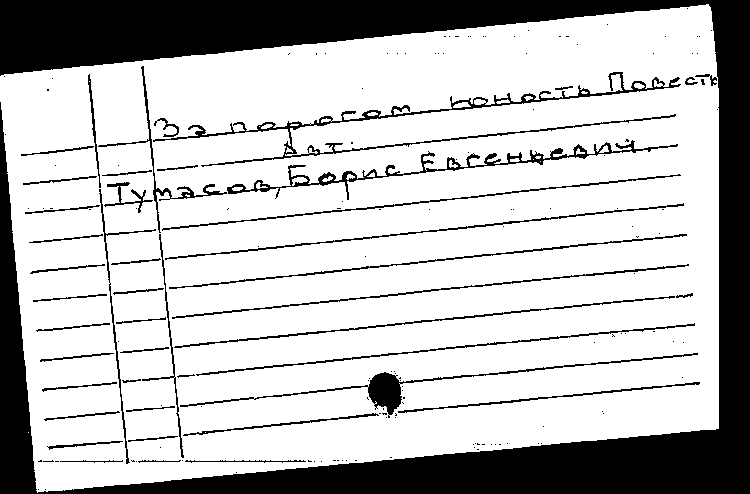 За порогом юность Повести
Авт:
Тумасов, Борис Евгеньевич.